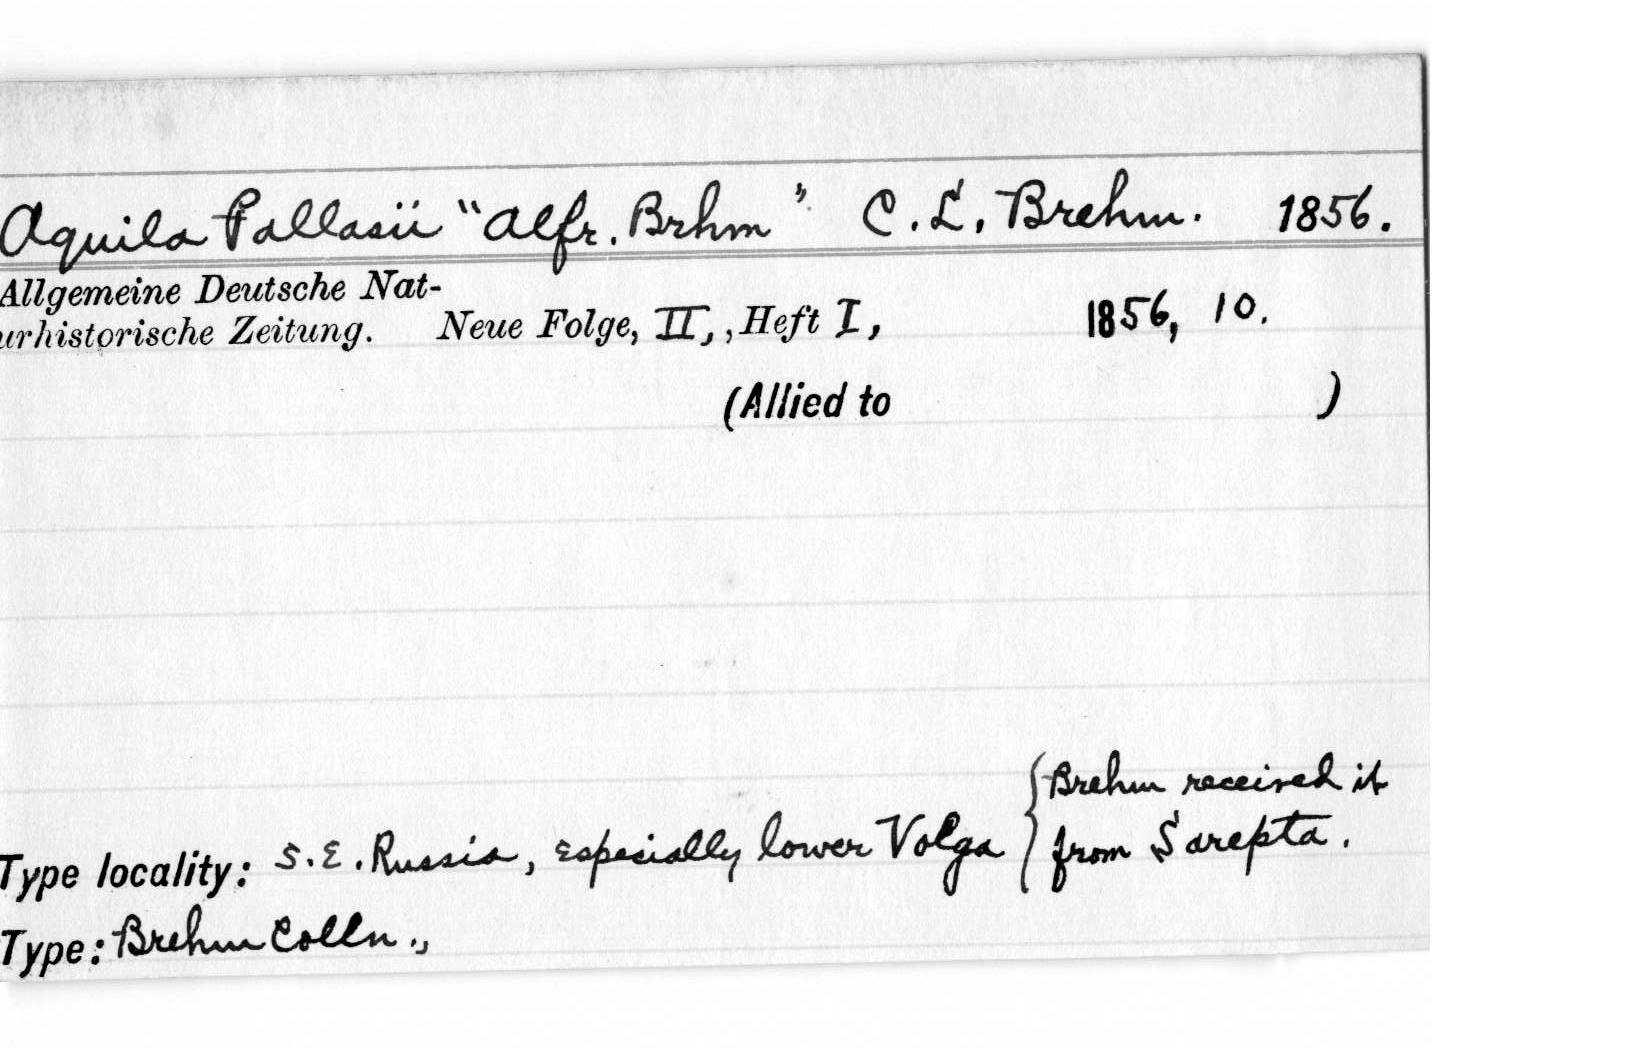 Aquila Pallasii "Alfr. Brhm" C. L. Brehm. 1856.
Allgemeine Deutsche Nat-
urhistorische Zeitung. Neue Folge, II, , Heft I, 1856, 10.
(Allied to )
Brehm received it
Type locality: S. E. Russia, especially lower Volga { from Sarepta.
Type: Brehm Colln.,